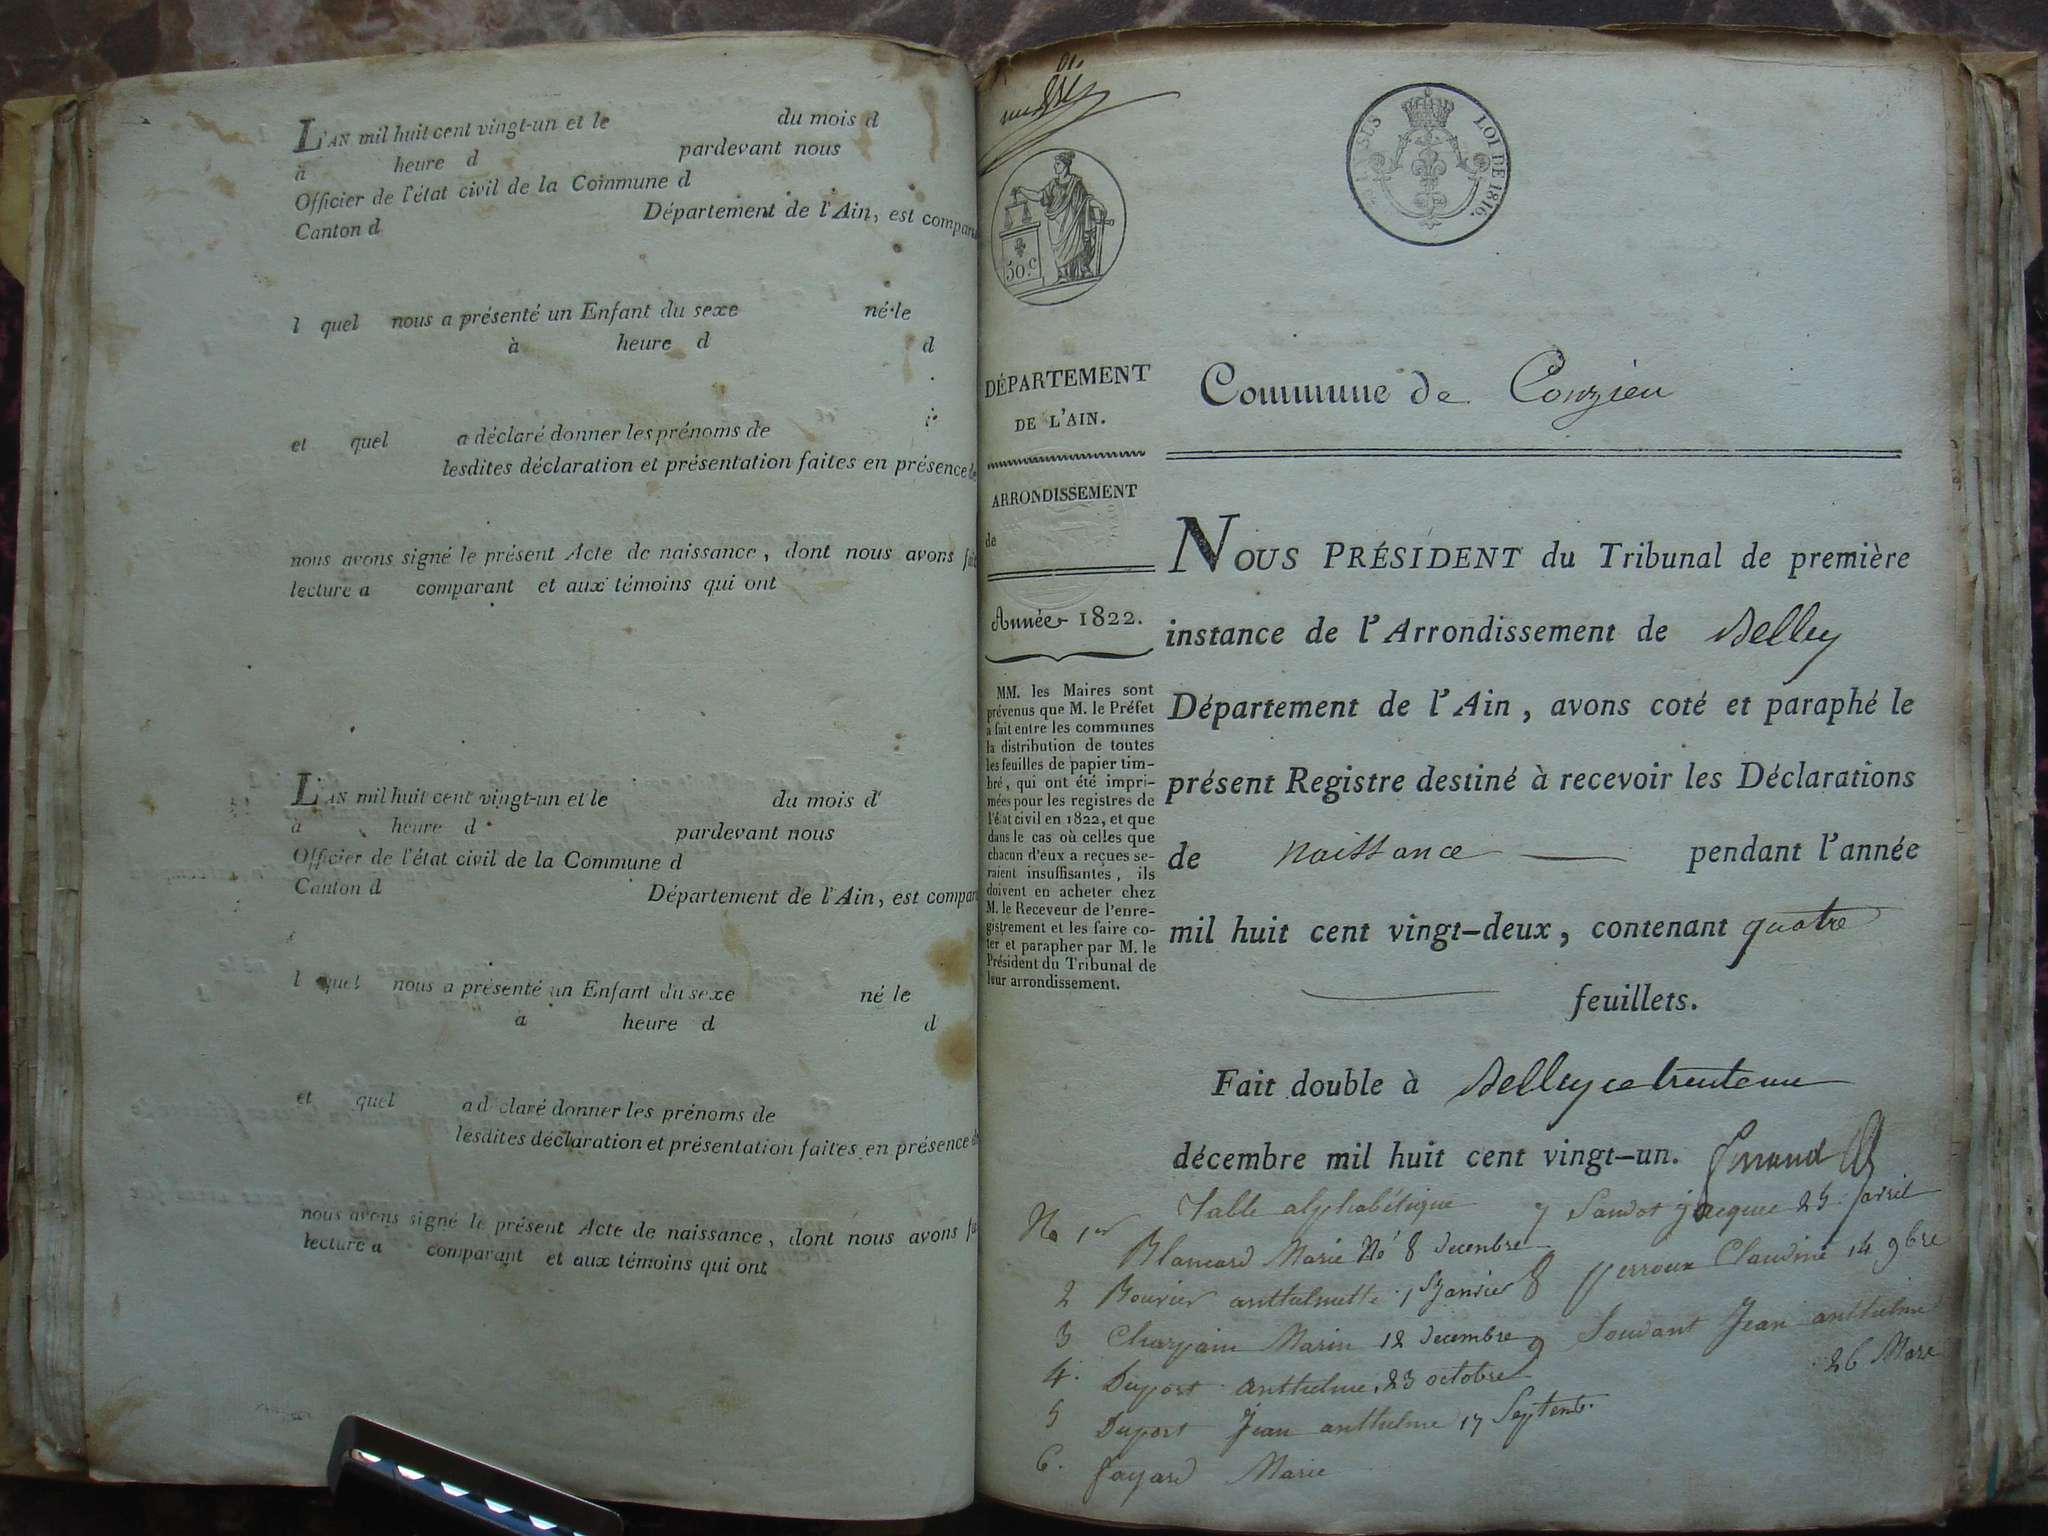 L'AN mil huit cent vingt-un et le du mois d
à heure d pardevant nous
Officier de l'état civil de la Commune d
Canton d Département de l'Ain, est comparu
l quel nous a présenté un Enfant du sexe né le
à heure d d
et quel a déclaré donner les prénoms de
lesdites déclaration et présentation faites en présence de
nous avons signé le présent Acte de naissance, dont nous avons fait
lecture a comparant et aux témoins qui ont
L'AN mil huit cent vingt-un et le du mois d
à heure d pardevant nous
Officier de l'état civil de la Commune d
Canton d Département de l'Ain, est compar
l quel nous a présenté un Enfant du sexe né le
a heure d d
et quel a déclaré donner les prénoms de
lesdites déclaration et présentation faites en présence de
nous avons signé le présent Acte de naissance, dont nous avons fa
lecture a comparant et aux témoins qui ont
LOI DE 1816.
50.c
DÉPARTEMENT
DE L'AIN.
ARRONDISSEMENT
de
Année 1822.
MM. les Maires sont
prévenus que M. le Préfet
a fait entre les communes
la distribution de toutes
les feuilles de papier tim-
bré, qui ont été impri-
mées pour les registres de
l'état civil en 1822, et que
dans le cas où celles que
chacun d'eux a reçues se-
raient insuffisantes, ils
doivent en acheter chez
M. le Receveur de l'enre-
gistrement et les faire co-
ter et parapher par M. le
Président du Tribunal de
leur arrondissement.
Commune de Conzieu
NOUS PRÉSIDENT du Tribunal de première
instance de l'Arrondissement de Belley
Département de l'Ain, avons coté et paraphé le
présent Registre destiné à recevoir les Déclarations
de naissance pendant l'année
mil huit cent vingt-deux, contenant quatre
feuillets.
Fait double à Belley ce trente un
décembre mil huit cent vingt-un.
Table alphabétique
No 1er Blancard Marie No 8 decembre
2 Bouvier anthelmette 1er Janvier
3 Charpain Marin 12 decembre
4. Duport anthelme 23 octobre
5 Duport Jean anthelme 17 Septemb.
6. fayard Marie
7 Sandot jacques 25 avril
8 perroux Claudine 14 9bre
9 Soudant Jean anthelme
26 Mars